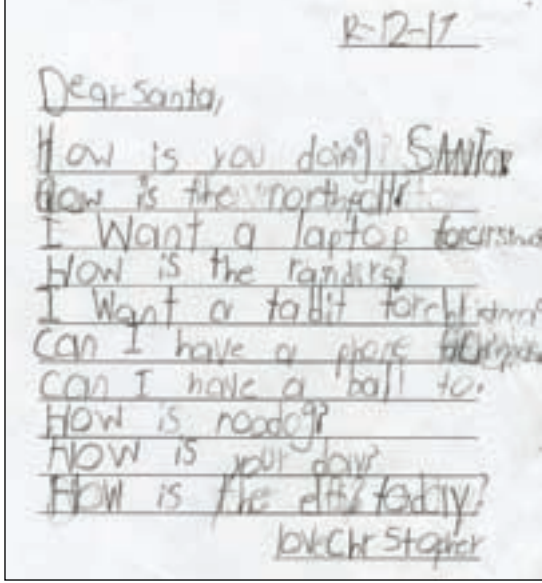 R-12-17
Dear Santa,
How is you doing? SANTA
How is the
I Want a laptop
How is the randirs?
I Want a tablit for
can I have a phone
can I have a ball to.
How is
How is your day?
How is the elfs today?
love Chr Stopher